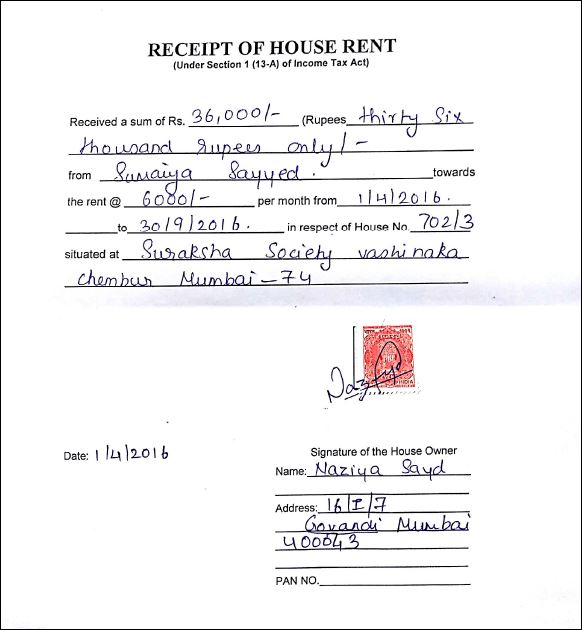 RECEIPT OF HOUSE RENT
(Under Section 1 (13-A) of Income Tax Act)
Received a sum of Rs. 36,000/- (Rupees thirty Six
thousand rupees only/-
from Sumaiya Sayyed. towards
the rent @ 6000/- per month from 1/4/2016.
to 30/9/2016. in respect of House No. 702/3
situated at Suraksha Society vashinaka
chembur Mumbai-74
INDIA
Date: 1/4/2016
Signature of the House Owner
Name: Naziya Sayd
Address: 16/I/7
Govandi Mumbai
400043
PAN NO.